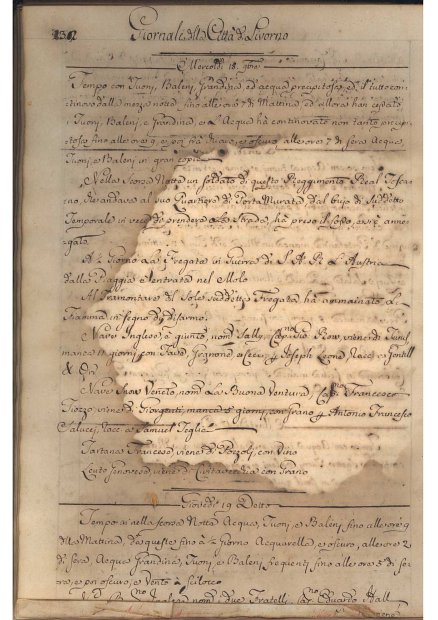 Giornale della Città di Livorno
Mercoledì 18
Tempo con Tuoni, Baleni, Grandine ed acqua precipitosa ed il tutto con
tinovo dalla mezza notte fino alle ore 7 di Mattina ed allora han cessato
i Tuoni, Baleni, e Grandine, e l'Acqua ha continovato non tanto precipi
tosa fino alle ore 9, e poi oscuro alle ore 7 di sera Acqua,
Tuoni, e Baleni in gran copia
Nella scorsa Notta un soldato di questo Reggimento Real Tosca
no, che andava al suo Quartiere di Porta Murata, dal bujo di
Temporale in vece di prendere la strada, ha preso il ed è anne
gato
A ½ Giorno La Fregata in Guerra di S. A. R. L'Austria
dalla Piaggia è entrata nel Molo
Al Tramontare del Sole suddetta Fregata ha ammainato La
Fiamma in segno di disarmo
Nave Inglese è giunta, nom. Sally, viene di
manca 17 giorni con
&
Nave Snow Veneto, nom. La Buona Ventura, Cap.no Francesco
viene di manca 5 giorni, con Grano p. Antonio Francesco
Salucci, racc. a Samuel
Tartana Francese, viene di Pozzoli, con Vino
Leuto Genovese, viene di Civitavecchia con Grano
Giovedì 19 Detto
Tempo ai nella scorsa Notta Acqua, Tuoni, e Baleni fino alle ore 9
della Mattina, da queste fino à ½ giorno Acquarella, e oscuro, alle ore 2
di sera Acqua Grandine, Tuoni, e Baleni frequenti fino alle ore 5 di se
ra, e poi oscuro, e Vento à Scilocco
nom. i due Fratelli, Cap.no Eduardo Hall